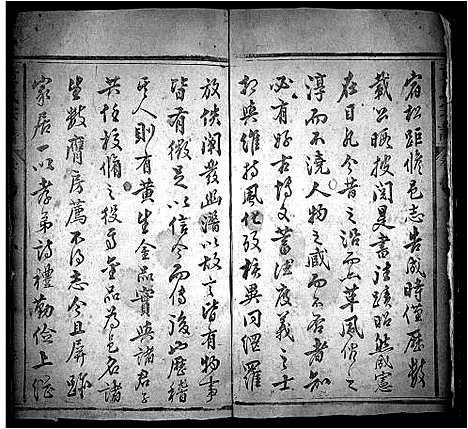 宿松距脩邑志告成時僅歷數
載公暇披閱是書往蹟昭然成憲
在目凡今昔之沿而革風俗之
淳而不澆人物之盛而不否者知
必有好古博文蓄道度義之士
相與維持風化考核異同網羅
放佚闡發幽潛以故言皆有物事
皆有徵足以信今而傳後此歷稽
其人則有黃生金品實與諸君子
共任校脩之役焉金品為邑名諸
生數膺房薦不得志今且屏跡
家居一以孝弟詩禮勤儉上繩